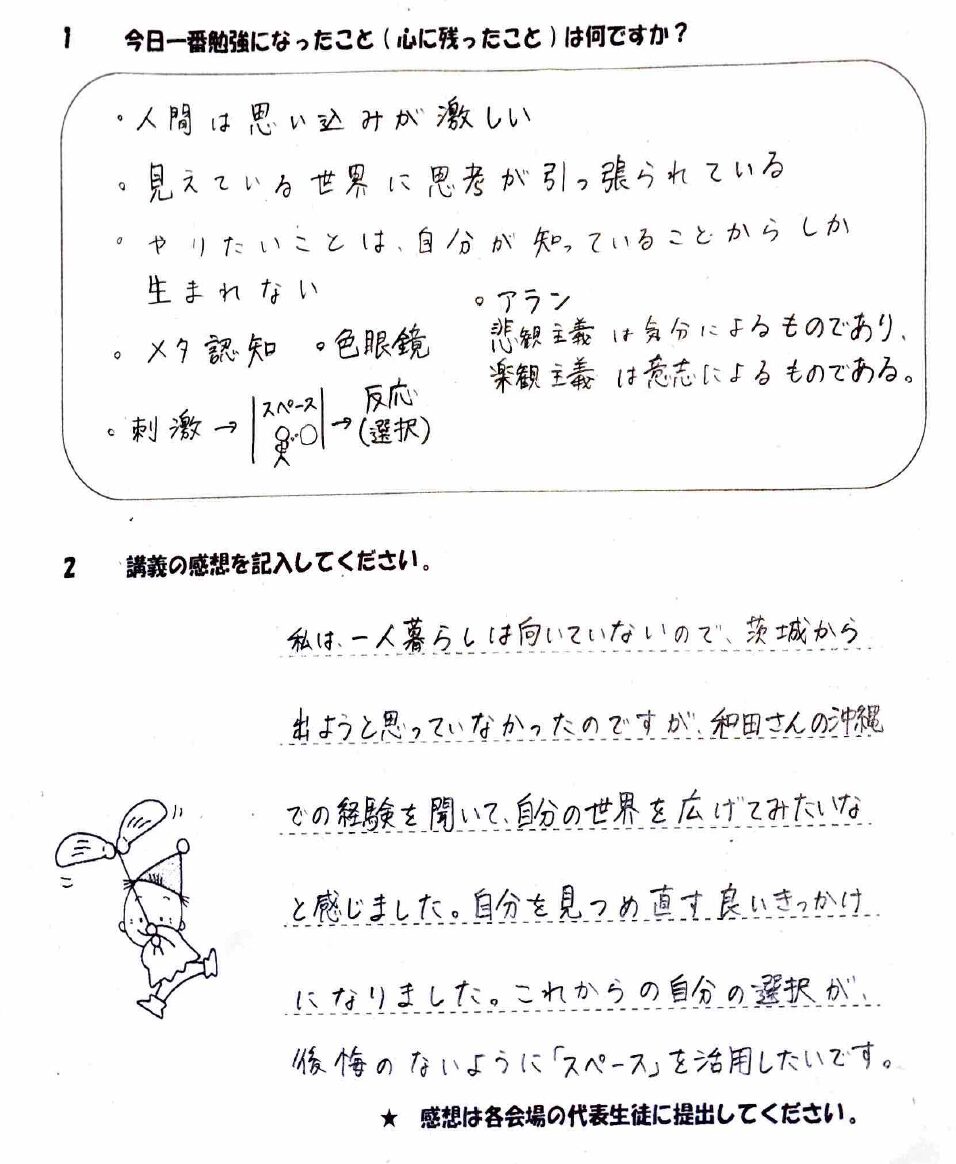 1 今日一番勉強になったこと(心に残ったこと)は何ですか?
・人間は思い込みが激しい
。見えている世界に思考が引っ張られている
。やりたいことは、自分が知っていることからしか
生まれない
。アラン
悲観主義は気分によるものであり、
楽観主義は意志によるものである。
。メタ認知 。色眼鏡
。刺激→|スペース|→反応
(選択)
2 講義の感想を記入してください。
私は、一人暮らしは向いていないので、茨城から
出ようと思っていなかったのですが、和田さんの沖縄
での経験を聞いて、自分の世界を広げてみたいな
と感じました。自分を見つめ直す良いきっかけ
になりました。これからの自分の選択が、
後悔のないように「スペース」を活用したいです。
★ 感想は各会場の代表生徒に提出してください。